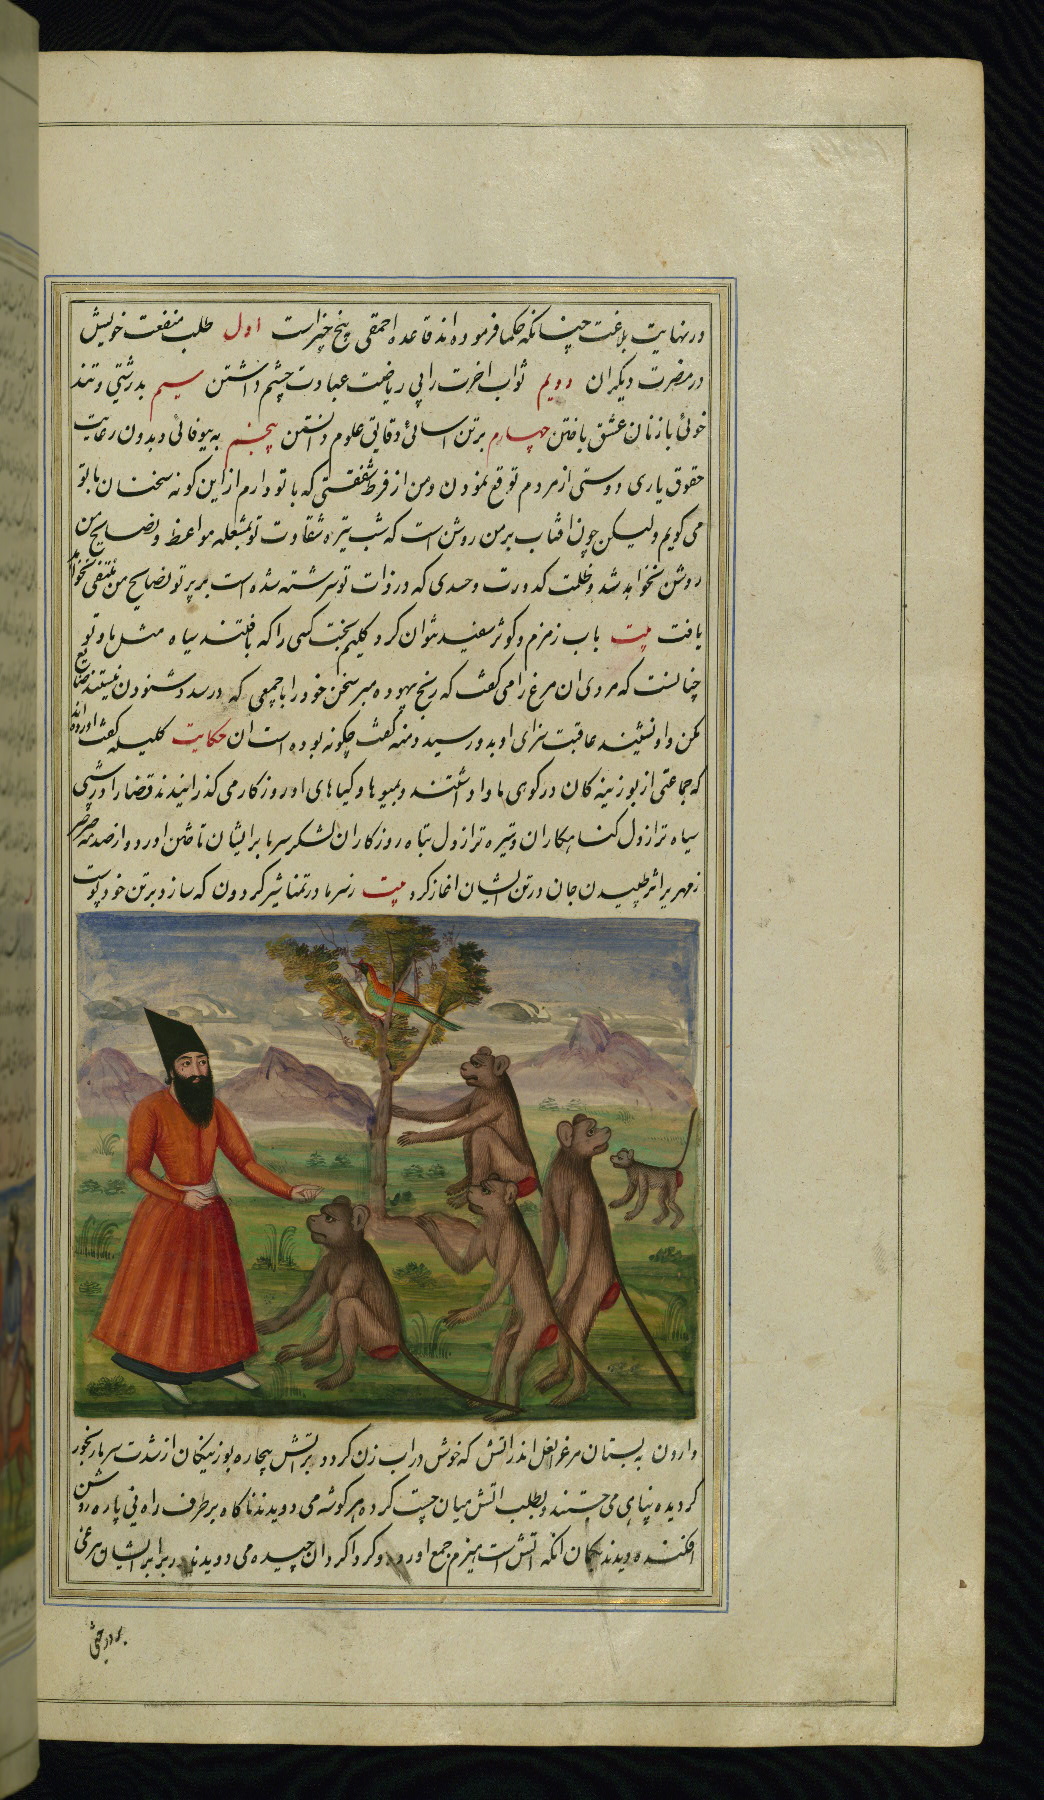 در نهایت بلاغت چنانکه حکما فرموده اند قاعده احمقی پنج چیز است اول طلب منفعت خویش
در مضرت دیگران دویم ثواب اخرت را بی ریاضت عبادت چشم داشتن سیم بدرشتی و تند
خوئی با زنان عشق باختن چهارم برتن اسانی دقایق علوم دانستن پنجم به بیوفائی و بدون رعایت
حقوق یاری دوستی از مردم توقع نمودن و من از فرط شفقتی که با تو دارم از این کونه سخنان با تو
می کویم ولیکن چون افتاب بر من روشن است که شب تیره شقاوت تو بمشعله مواعظ و نصایح من
روشن نخواهد شد و ظلمت کدورت و حسدی که در ذات تو سرشته شده است بر پرتو نصایح من منتفی نخواهد
یافت بیت باب زمزم و کوثر سفید نتوان کرد کلیم بخت کسی را که بافتند سیاه مثل ما و تو
چنانست که مردی ان مرغ را می کفت که رنج بیهوده مبر سخن خود را با جمعی که در صدد شنودن نیستند ضایع
مکن و او نشنید عاقبت سزای او بدو رسید دمنه کفت چکونه بوده است ان حکایت کلیله کفت اورده اند
که جماعتی از بوزینه کان در کوی ماوا داشتند و بمیوها و کیاهای او روزکار می کذرانیدند قضا را در شبی
سیاه تر از دل کناهکاران و تیره تر از دل تباه روزکاران لشکر سرما بر ایشان تاختن اورد و از صدمه صرصر
زمهریر اثر طپیدن جان در تن ایشان اغاز کرد بیت ز سرما در تمنا شیر کردون که سازد بر تن خود پوست
وارون به بستان مرغ نغل اندر اتش که خوش در اب زن کردد بر اتش بیچاره بوزینکان از شدت سرما رنجور
کردیده پناهی می جستند و بطلب اتش میان چست کرده هر کوشه می دویدند ناکاه بر طرف راه نی پاره روشن
افکنده دیدند بکمان انکه اتش است هیزم جمع اوردند و کرداکرد ان چیده می دویدند در برابر ایشان مرغی
بر درختی